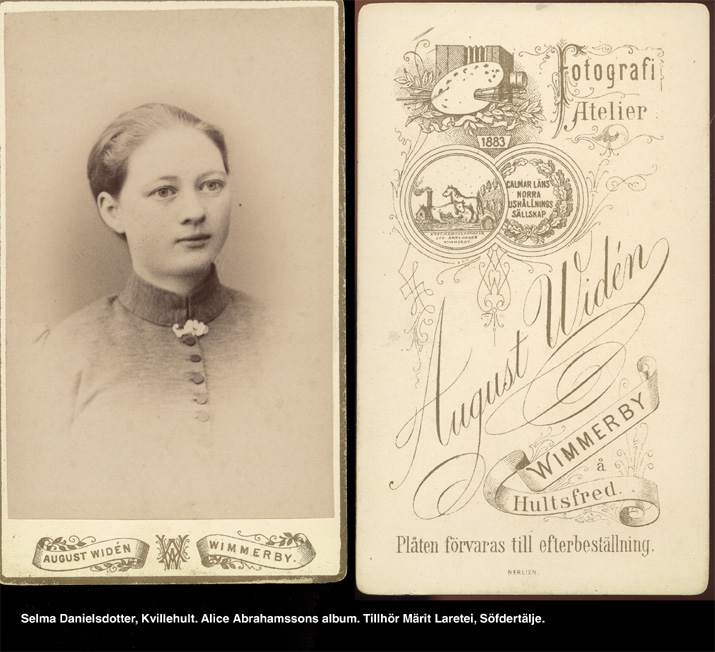 AUGUST WIDÉN
WIMMERBY.
Fotografi
Atelier
1883
CALMAR LÄNS
NORRA
USHÅLLNINGS
SÄLLSKAP
August Widén
WIMMERBY
å
Hultsfred.
Plåten förvaras till efterbeställning.
BERLIEN.
Selma Danielsdotter, Kvillehult. Alice Abrahamssons album. Tillhör Märit Laretei, Söfdertälje.